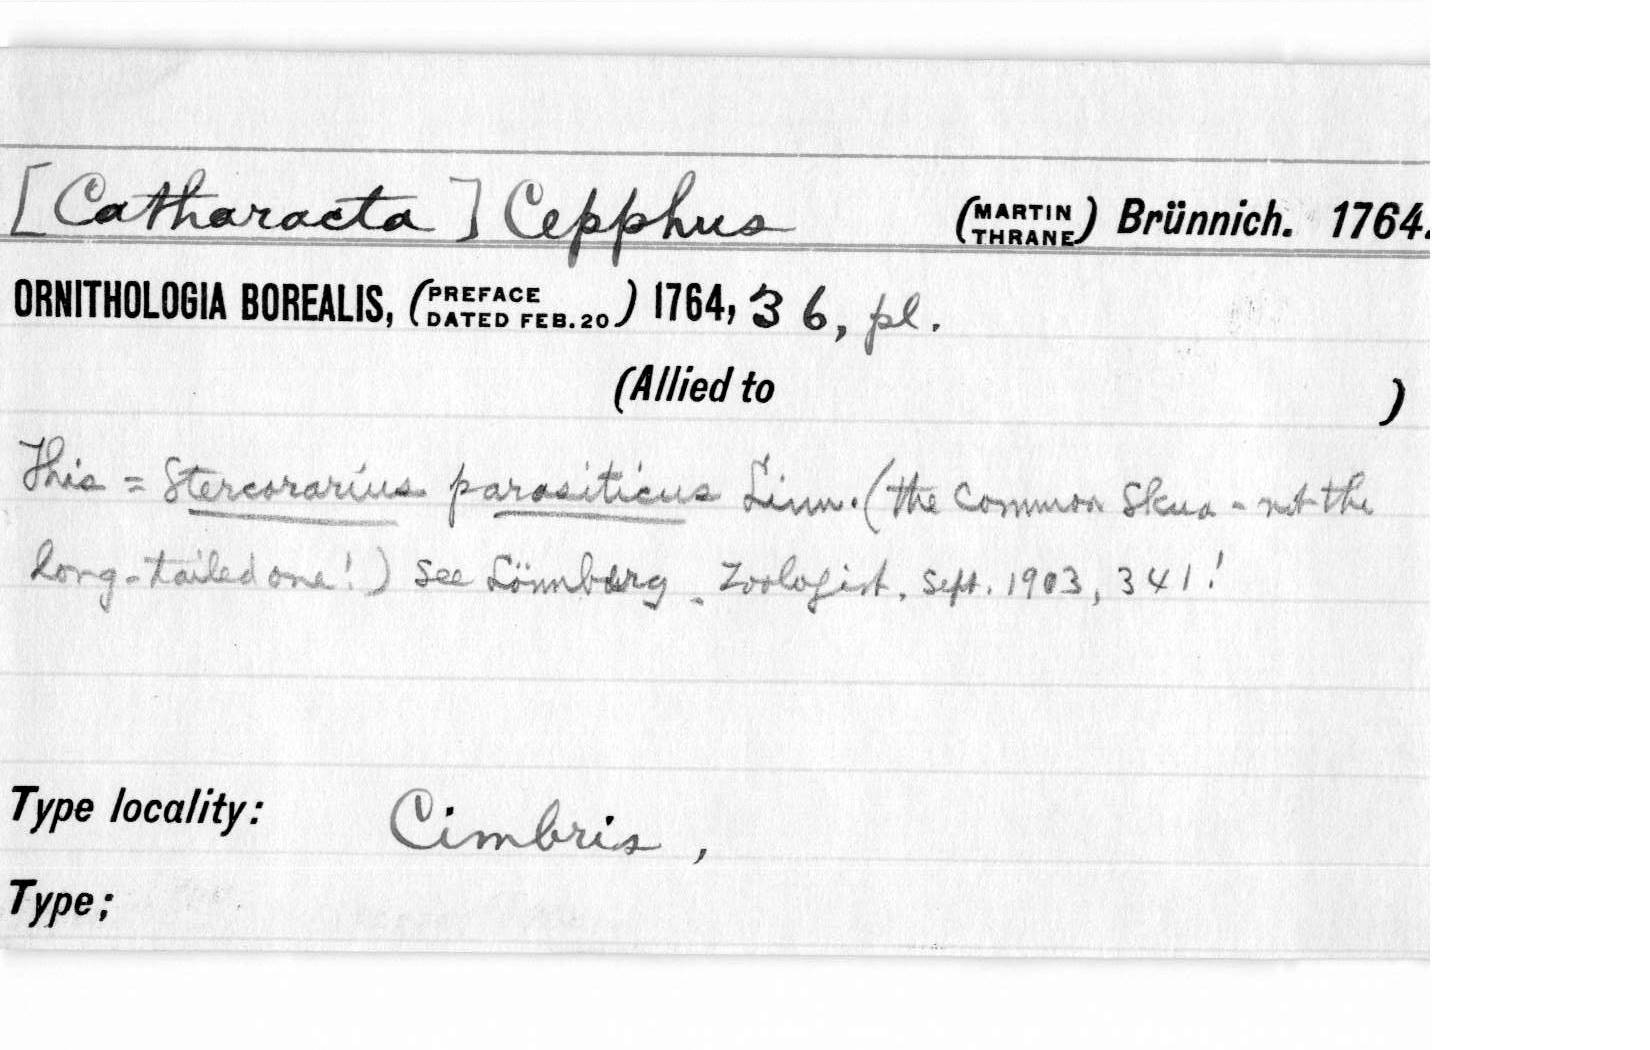 [Catharacta] Cepphus (MARTIN THRANE) Brünnich. 1764.
ORNITHOLOGIA BOREALIS, (PREFACE DATED FEB. 20) 1764, 36, pl.
(Allied to )
This = Stercorarius parasiticus Linn. (the common Skua - not the
long-tailed one!) See Lönnberg - Zoologist, Sept. 1903, 341!
Type locality: Cimbris,
Type;